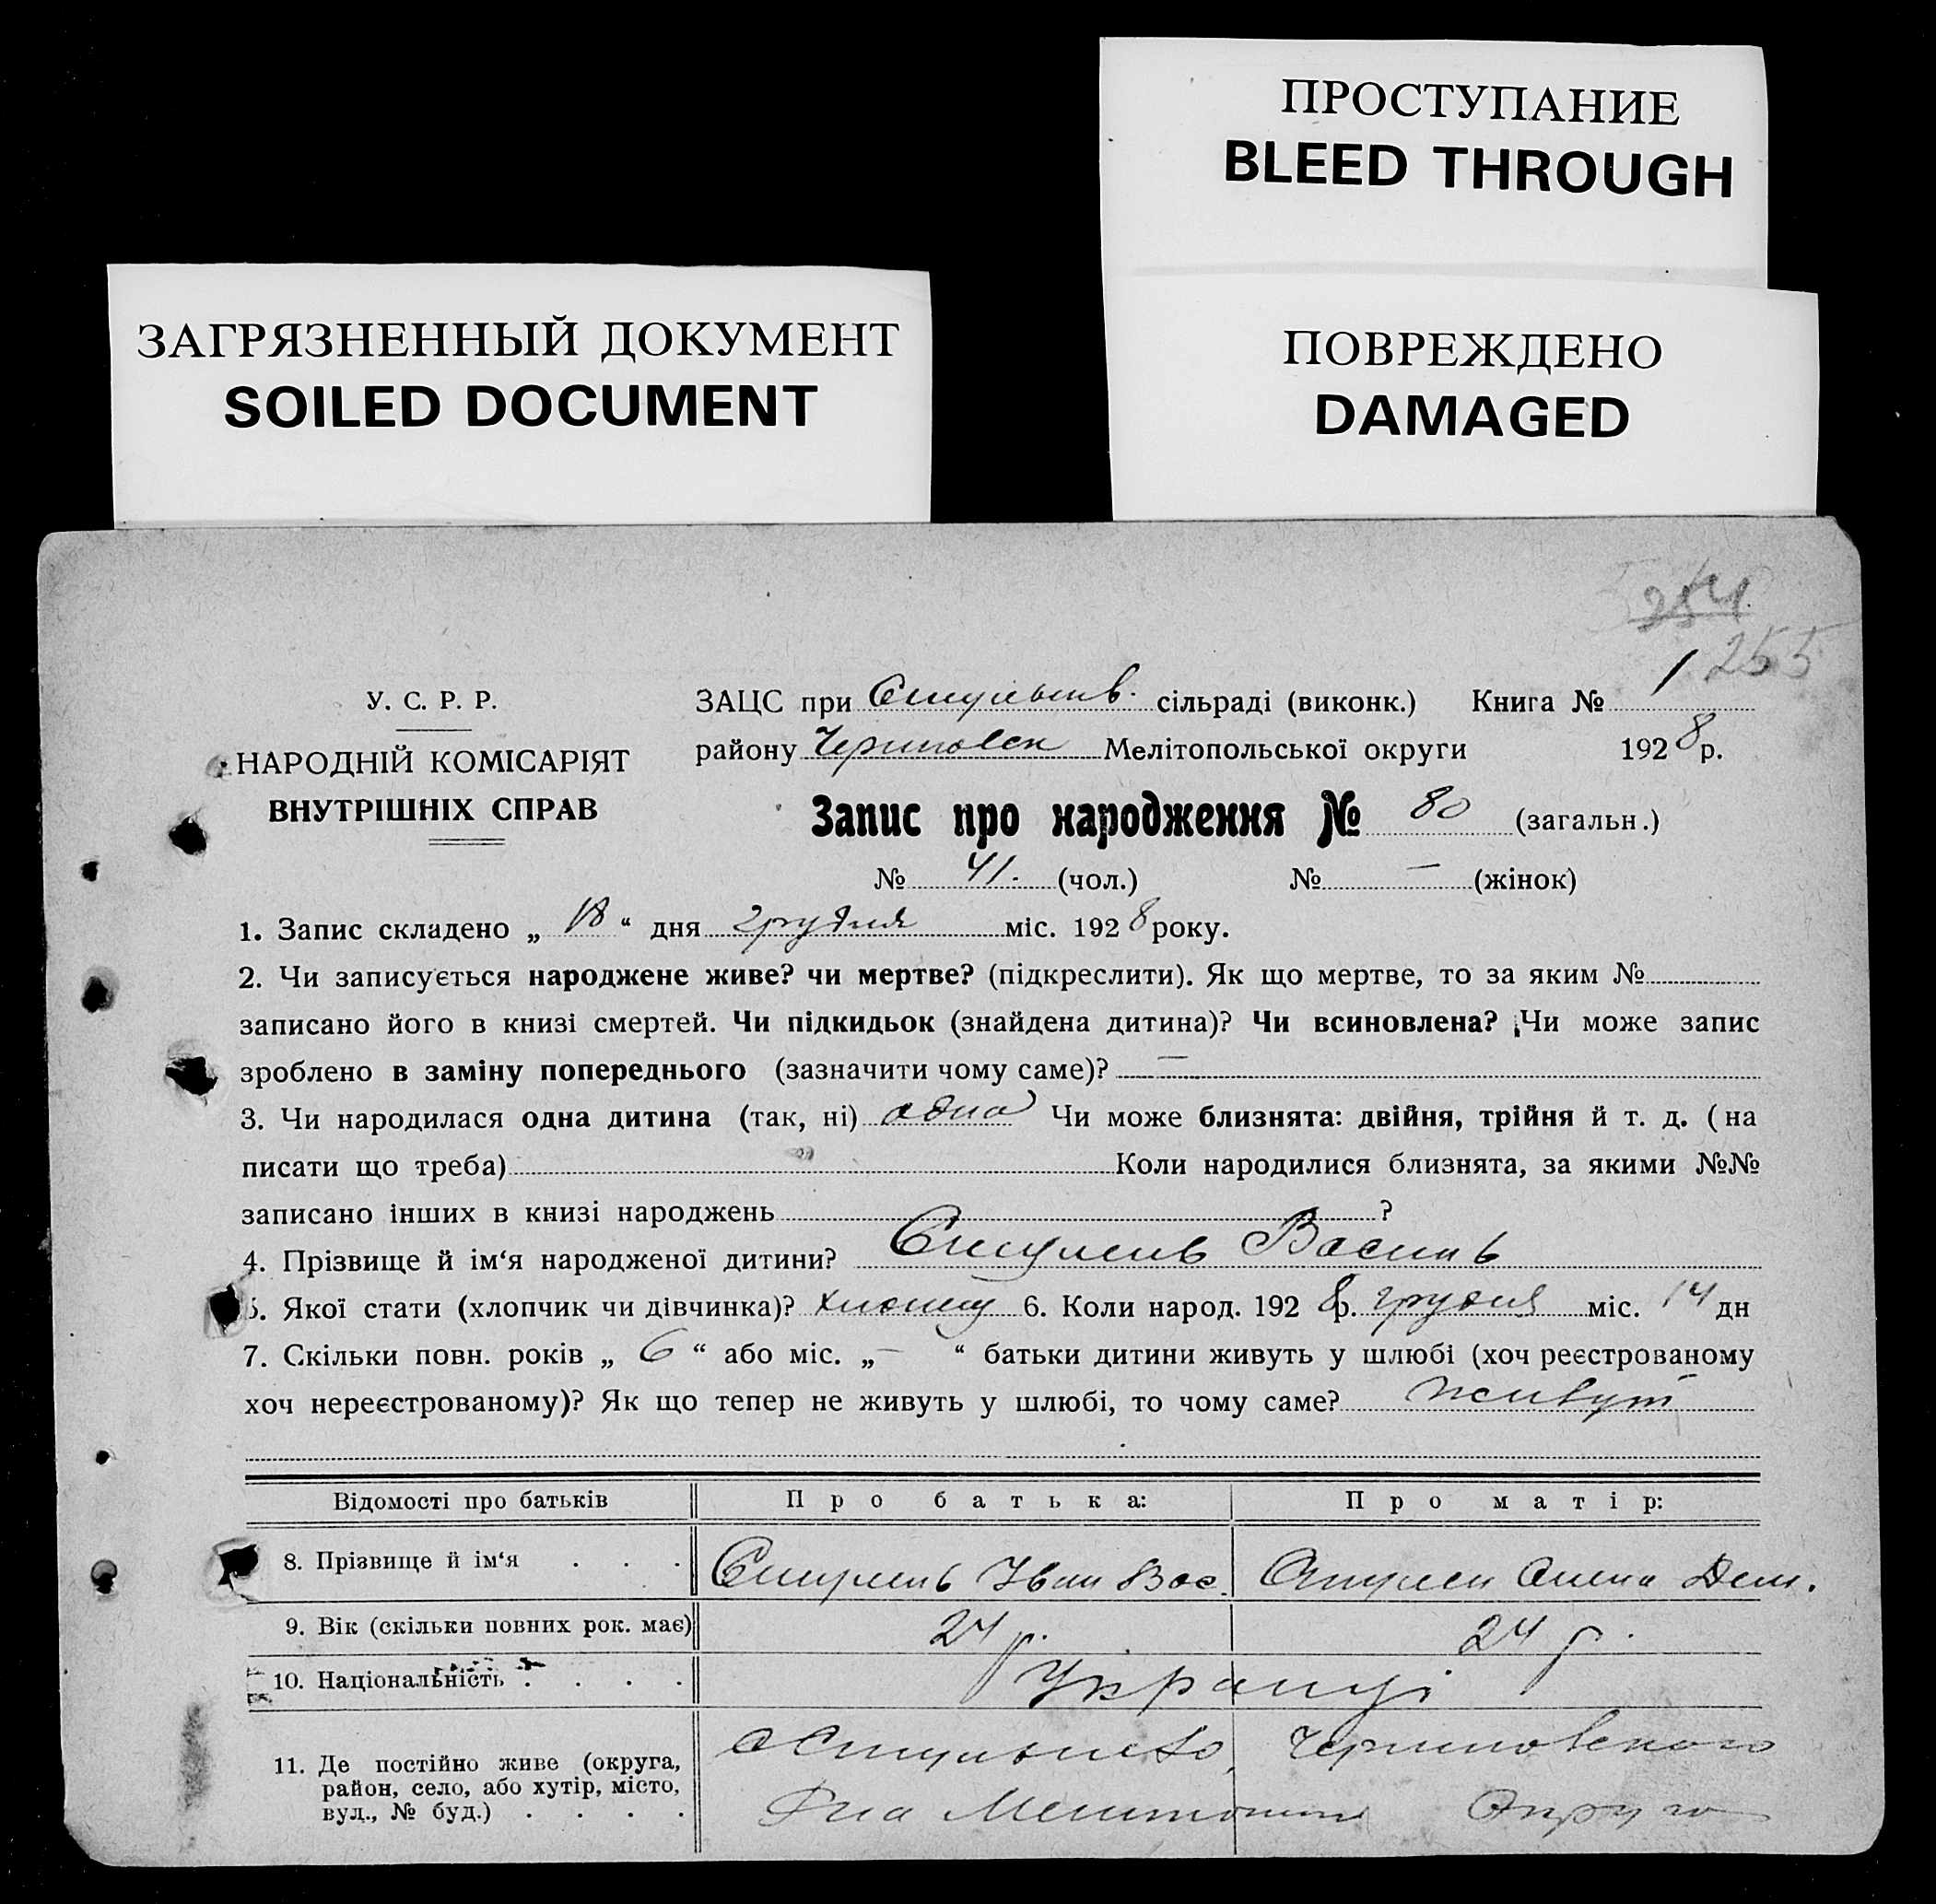 ПРОСТУПАНИЕ
BLEED THROUGH
ЗАГРЯЗНЕННЫЙ ДОКУМЕНТ
SOILED DOCUMENT
ПОВРЕЖДЕНО
DAMAGED
254
255
У. С. Р. Р.
НАРОДНІЙ КОМІСАРІЯТ
ВНУТРІШНІХ СПРАВ
ЗАЦС при сільраді (виконк.) Книга № 1
району Мелітопольської округи 1928 р.
Запис про народження № 80 (загальн.)
№ 41. (чол.) № — (жінок)
1. Запис складено „ 18 “ дня грудня міс. 1928 року.
2. Чи записується народжене живе? чи мертве? (підкреслити). Як що мертве, то за яким №
записано його в книзі смертей. Чи підкидьок (знайдена дитина)? Чи всиновлена? Чи може запис
зроблено в заміну попереднього (зазначити чому саме)? —
3. Чи народилася одна дитина (так, ні) одна Чи може близнята: двійня, трійня й т. д. (на
писати що треба) Коли народилися близнята, за якими №№
записано інших в книзі народжень ?
4. Прізвище й ім‘я народженої дитини? Василь
5. Якої стати (хлопчик чи дівчинка)? 6. Коли народ. 1928 р. грудня міс. 14 дн
7. Скільки повн. років „ 6 “ або міс. „ – “ батьки дитини живуть у шлюбі (хоч реєстрованому
хоч нереєстрованому)? Як що тепер не живуть у шлюбі, то чому саме? живут
Відомості про батьків Про батька: Про матір:
8. Прізвище й ім‘я . . . Іван Вас.
9. Вік (скільки повних рок. має) 24 р. 24 р.
10. Національність . . . . Украінці
11. Де постійно живе (округа,
район, село, або хутір, місто,
вул., № буд.) . . . . Округи